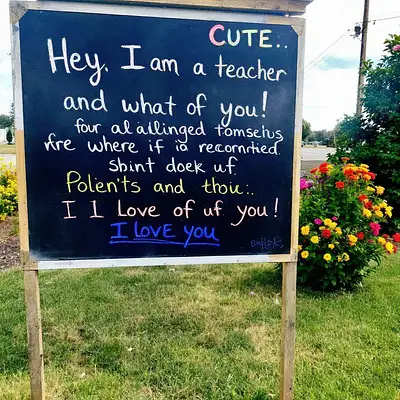 CUTE..
Hey. I am a teacher
and what of you!
four al ailinged tomseius
Are where if io recorntied.
sbint doek uf.
Polien'ts and thoie:.
I I Love of uf you!
I LOVE YOU